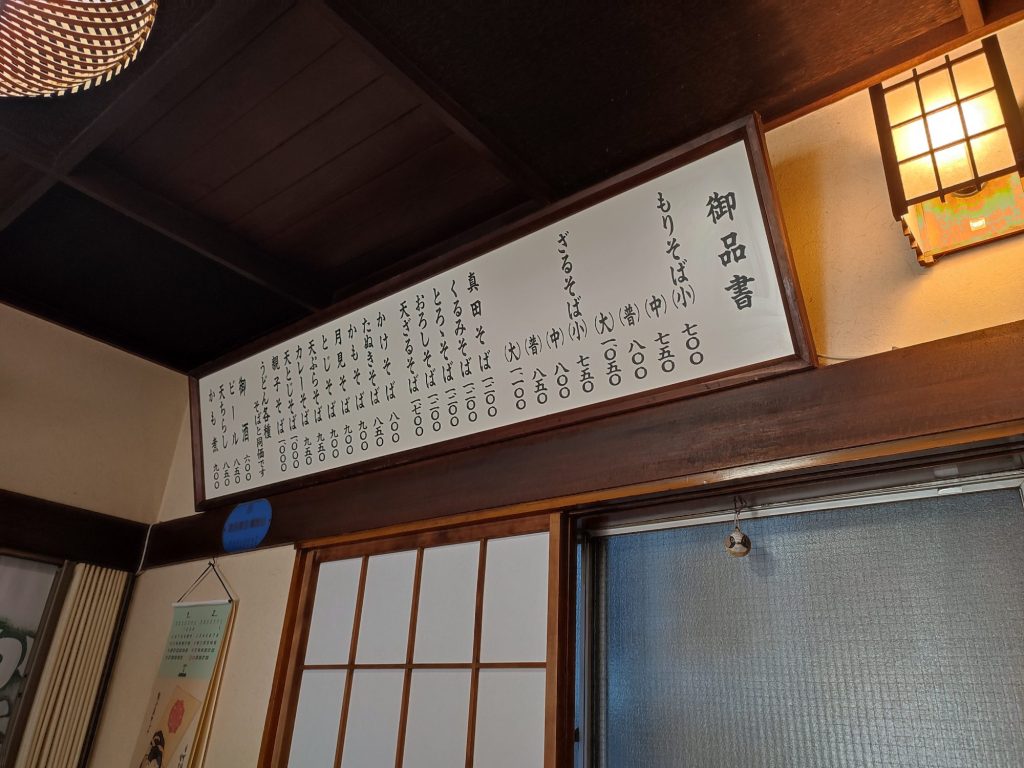 御品書
もりそば(小) 七〇〇
(中) 七五〇
(普) 八〇〇
(大) 一〇五〇
ざるそば(小) 七五〇
(中) 八〇〇
(普) 八五〇
(大) 一一〇〇
真田そば
くるみそば
とろろそば 一二〇〇
おろしそば 一二〇〇
天ざるそば 一七〇〇
かけそば 八〇〇
たぬきそば 八五〇
かもそば 九〇〇
月見そば 九〇〇
とじそば 九〇〇
天ぷらそば 九五〇
カレーそば 九五〇
天とじそば 一〇〇〇
親子そば 一〇〇〇
うどん各種
そばと同価です
御酒 六〇〇
ビール 八五〇
天ちらし 八五〇
かも煮 九〇〇